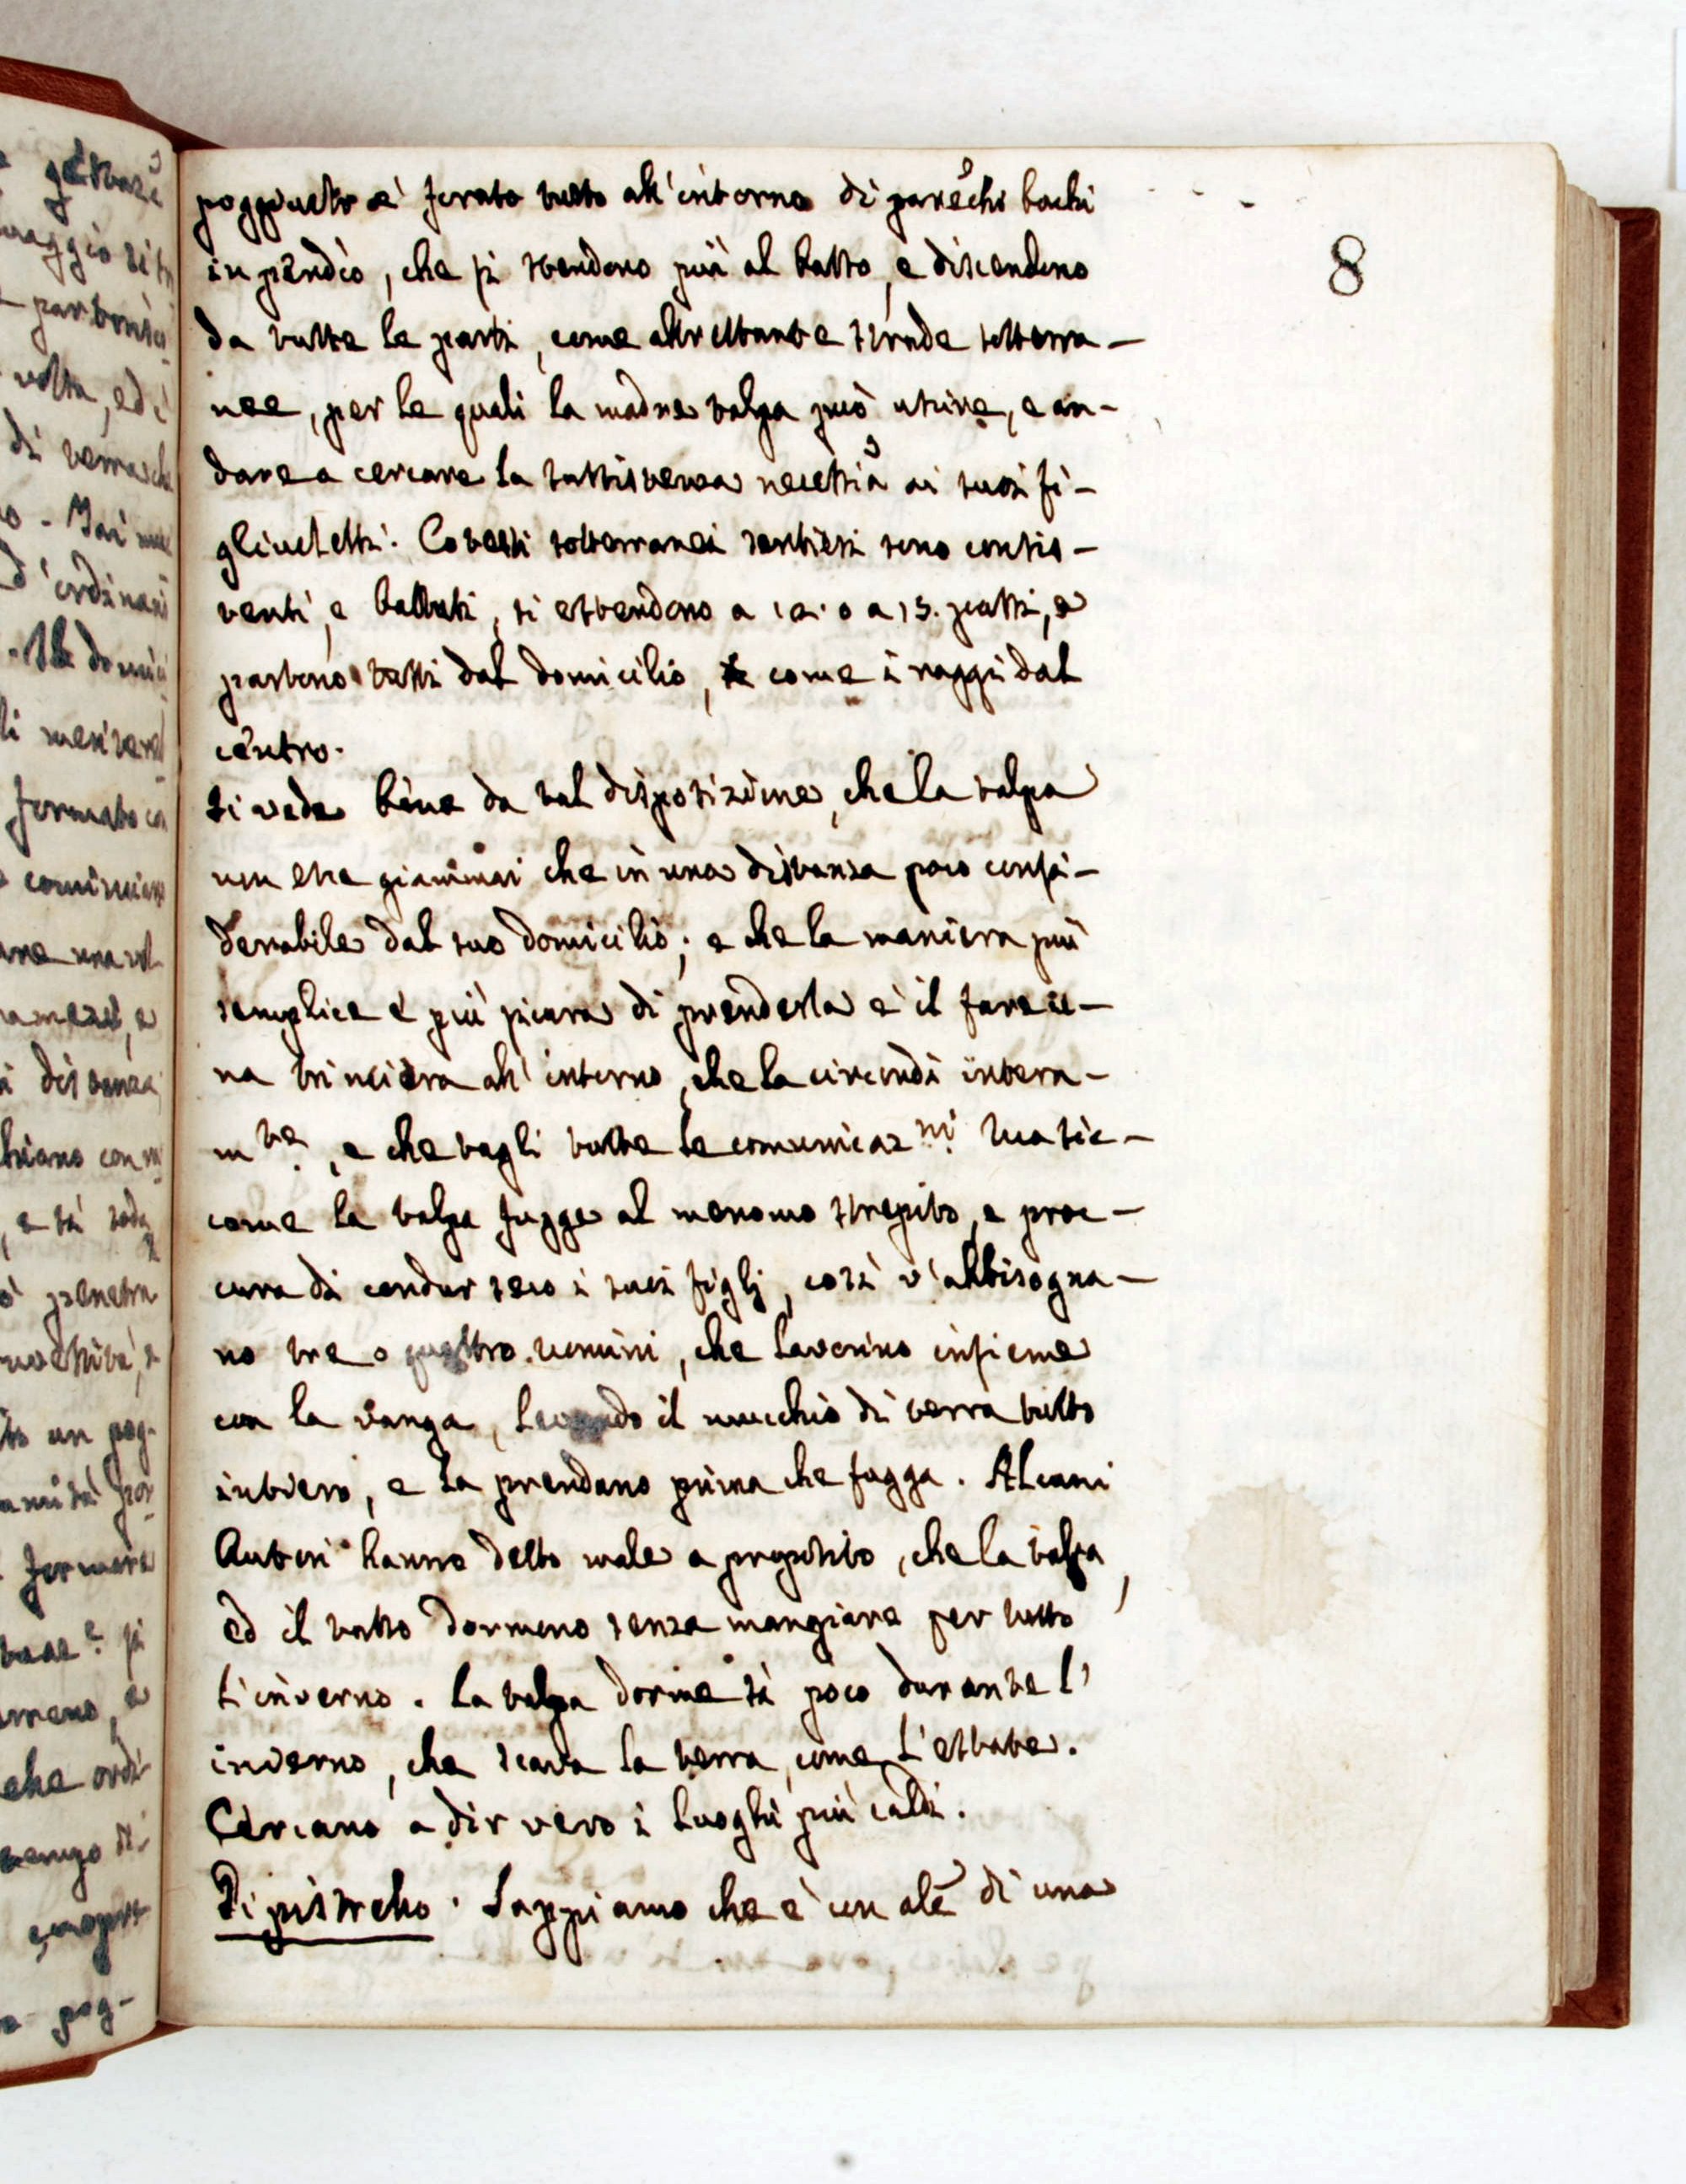 8
poggiuolo è forato tutto all'intorno di parecchi buchi
in pendìo, che si stendono più al basso, e discendono
da tutte le parti, come altrettante strade sotterra-
nee, per le quali la madre talpa può uscire, e an-
dare a cercare la sussistenza necessia ai suoi fi-
gliuoletti. Cotesti sotterranei sentieri sono consis-
tenti, e battuti, si estendono a 12. o a 15. passi, e
partono tutti dal domicilio, come i raggi dal
céntro.
Si vede bene da tal disposizione, che la talpa
non esce giammai che in una distanza poco consi-
derabile dal suo domicilio; e che la maniera più
semplice e più sicura di prenderla è il fare u-
na trinciera all'intorno, che la circondi intera-
mte., e che tagli tutte le comunicazni. Ma sic-
come la talpa fugge al menomo strepito, e proc-
cura di condur seco i suoi figlj, così v'abbisogna-
no tre o quattro uomini, che lavorino insieme
con la vanga, levando il mucchio di terra tutto
intiero, e la prendano prima che fugga. Alcuni
Autori hanno detto male a proposito, che la talpa,
ed il tasso dormono senza mangiare per tutto
l'inverno. La talpa dorme sì poco durante l'
inverno, che scava la terra, come l'estate.
Cercano a dir vero i luoghi più caldi.
Di che è un ale di una